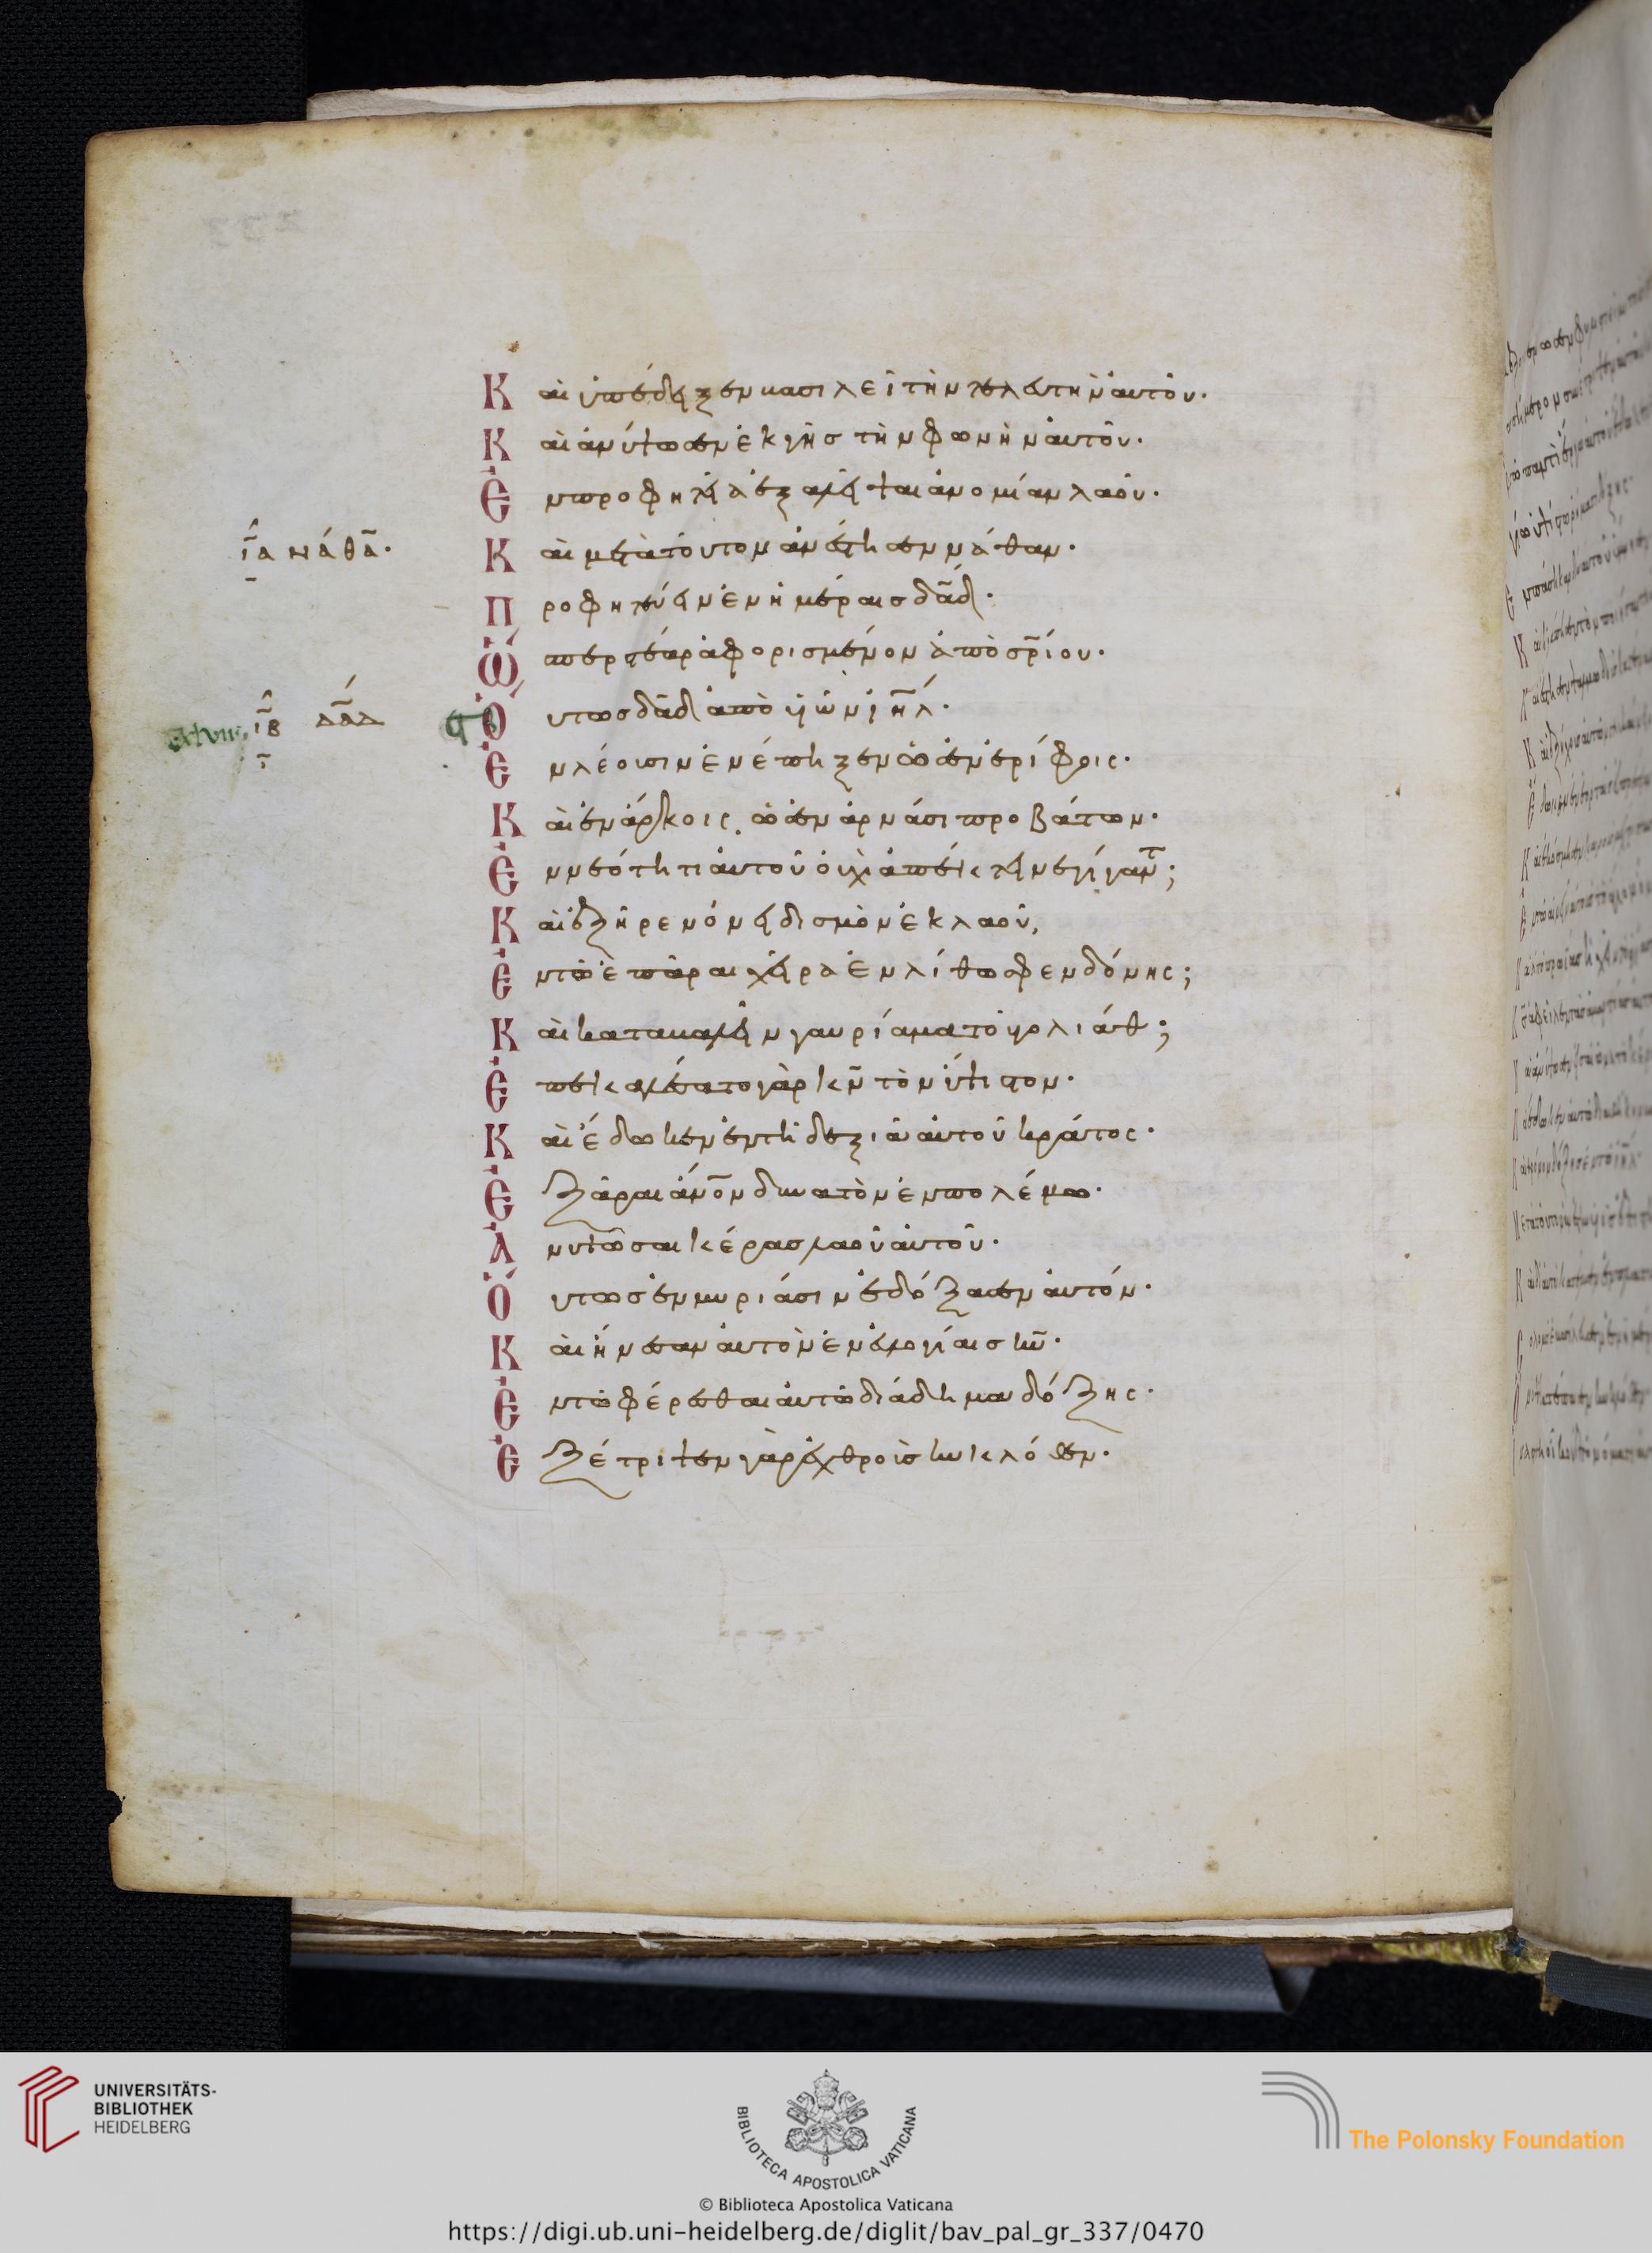 Καὶ ὑπέδειξεν βασιλεῖ τὴν τελευτὴν αὐτοῦ·
Καὶ ἀνύψωσεν ἐκ γῆς τὴν φωνὴν αὐτοῦ·
Ἐν προφητεία ἐξαλεῖψαι ἀνομίαν λαοῦ·
ια νάθα̅·
Καὶ μετὰ τοῦτον ἀνέστη σεν νάθαν·
Προφητεύειν ἐν ἡμέραις δα̅δ·
Ὥσπερ στέαρ ἀφορισμένον ἀπὸ σρ̅ίου·
ιβ δα̅δ
Οὕτως δα̅δ ἀπὸ υἱῶν ιη̅λ·
Ἐν λέουσιν ἐνέπηξεν ὡς ἐν ἐρίφοις·
Καὶ ἐν ἄρκοις, ὡς ἐν ἀρνάσι προβάτων·
Ἐν νεότητι αὐτοῦ οὐχὶ ἀπέκτεινε γίγαντ;
Καὶ ἐξῆρεν ὀνειδισμὸν ἐκ λαοῦ,
Ἐν τῶ ἐπᾶραι χεῖρα ἐν λίθω σφενδόνης;
Καὶ καταβαλεῖν γαυρίαμα τοῦ γολιάθ;
Ἐπεκαλέσατο γὰρ κ̅ν̅ τὸν ὕψιστον·
Καὶ ἔδωκεν ἐν τῆ δεξιᾶ αὐτοῦ κράτος·
Ἐξᾶραι ἄν̅ο̅ν̅ δυνατὸν ἐν πολέμω·
Ἀνυψῶσαι κέρας λαοῦ αὐτοῦ·
Οὕτως ἐν μυριάσιν ἐδόξασεν αὐτόν·
Καὶ ἤνεσαν αὐτὸν ἐν εὐλογίαις κ̅υ̅·
Ἐν τῶ φέρεσθαι αὐτῶ διάδημα δόξης·
Ἐξέτριψεν γὰρ ἐχθροὺς κυκλόθεν·
UNIVERSITÄTS-
BIBLIOTHEK
HEIDELBERG
BIBLIOTECA APOSTOLICA VATICANA
The Polonsky Foundation
© Biblioteca Apostolica Vaticana
https://digi.ub.uni-heidelberg.de/diglit/bav_pal_gr_337/0470